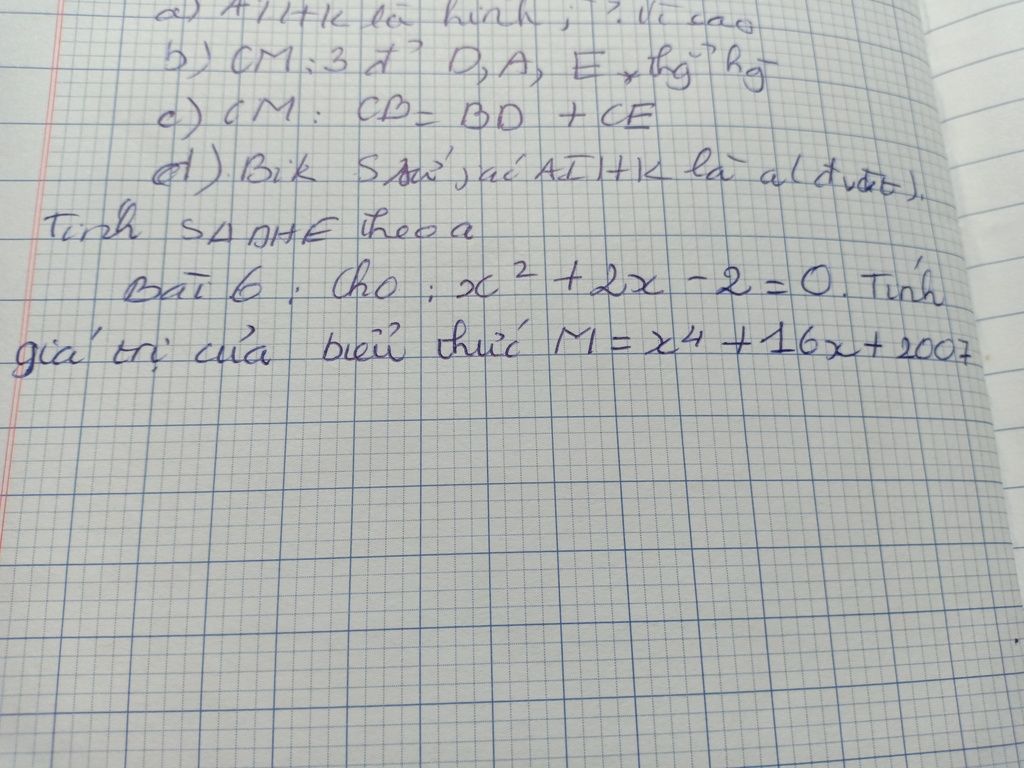 a) AIHK là hình ; ? Vì sao
b) CM : 3 đ? D, A, E thg? hg
c) CM : CB = BD + CE
d) Bik S tứ ; ác AIHK là a (đvdt).
Tính SADHE theo a
Bài 6 : Cho : x² + 2x - 2 = 0. Tính
giá trị của biểu thức M = x4 + 16x + 2007